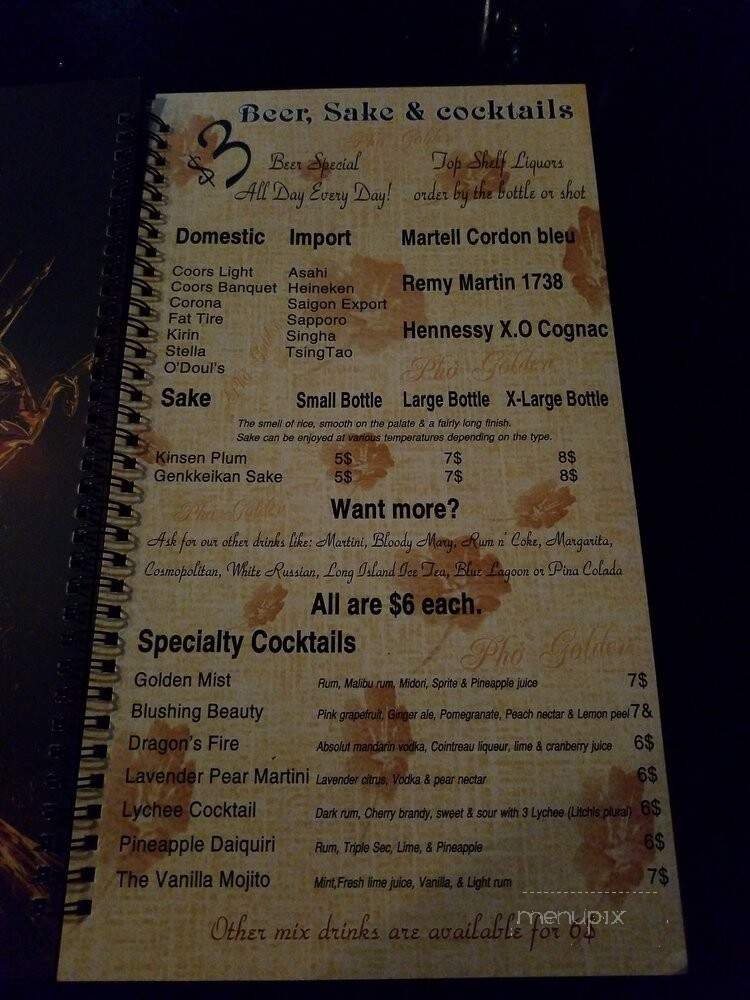 Beer, Sake & cocktails
$3 Beer Special
All Day Every Day!
Top Shelf Liquors
order by the bottle or shot
Domestic Import
Coors Light Asahi
Coors Banquet Heineken
Corona Saigon Export
Fat Tire Sapporo
Kirin Singha
Stella TsingTao
O'Doul's
Martell Cordon bleu
Remy Martin 1738
Hennessy X.O Cognac
Pho Golden
Sake Small Bottle Large Bottle X-Large Bottle
The smell of rice, smooth on the palate & a fairly long finish.
Sake can be enjoyed at various temperatures depending on the type.
Kinsen Plum 5$ 7$ 8$
Genkkeikan Sake 5$ 7$ 8$
Pho Golden
Want more?
Ask for our other drinks like: Martini, Bloody Mary, Rum n' Coke, Margarita,
Cosmopolitan, White Russian, Long Island Ice Tea, Blue Lagoon or Pina Colada
All are $6 each.
Specialty Cocktails
Pho Golden
Golden Mist Rum, Malibu rum, Midori, Sprite & Pineapple juice 7$
Blushing Beauty Pink grapefruit, Ginger ale, Pomegranate, Peach nectar & Lemon peel 7&
Dragon's Fire Absolut mandarin vodka, Cointreau liqueur, lime & cranberry juice 6$
Lavender Pear Martini Lavender citrus, Vodka & pear nectar 6$
Lychee Cocktail Dark rum, Cherry brandy, sweet & sour with 3 Lychee (Litchis plural) 6$
Pineapple Daiquiri Rum, Triple Sec, Lime, & Pineapple 6$
The Vanilla Mojito Mint,Fresh lime juice, Vanilla, & Light rum 7$
menupix
Other mix drinks are available for 6$